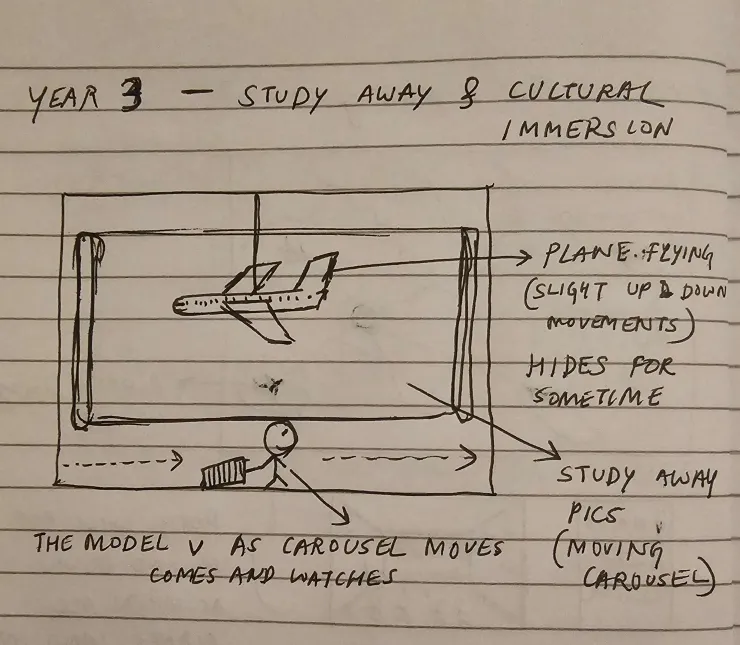 YEAR 3 — STUDY AWAY & CULTURAL
IMMERSION
PLANE FLYING
(SLIGHT UP & DOWN
MOVEMENTS)
HIDES FOR
SOMETIME
STUDY AWAY
PICS
(MOVING
CAROUSEL)
THE MODEL V AS CAROUSEL MOVES
COMES AND WATCHES